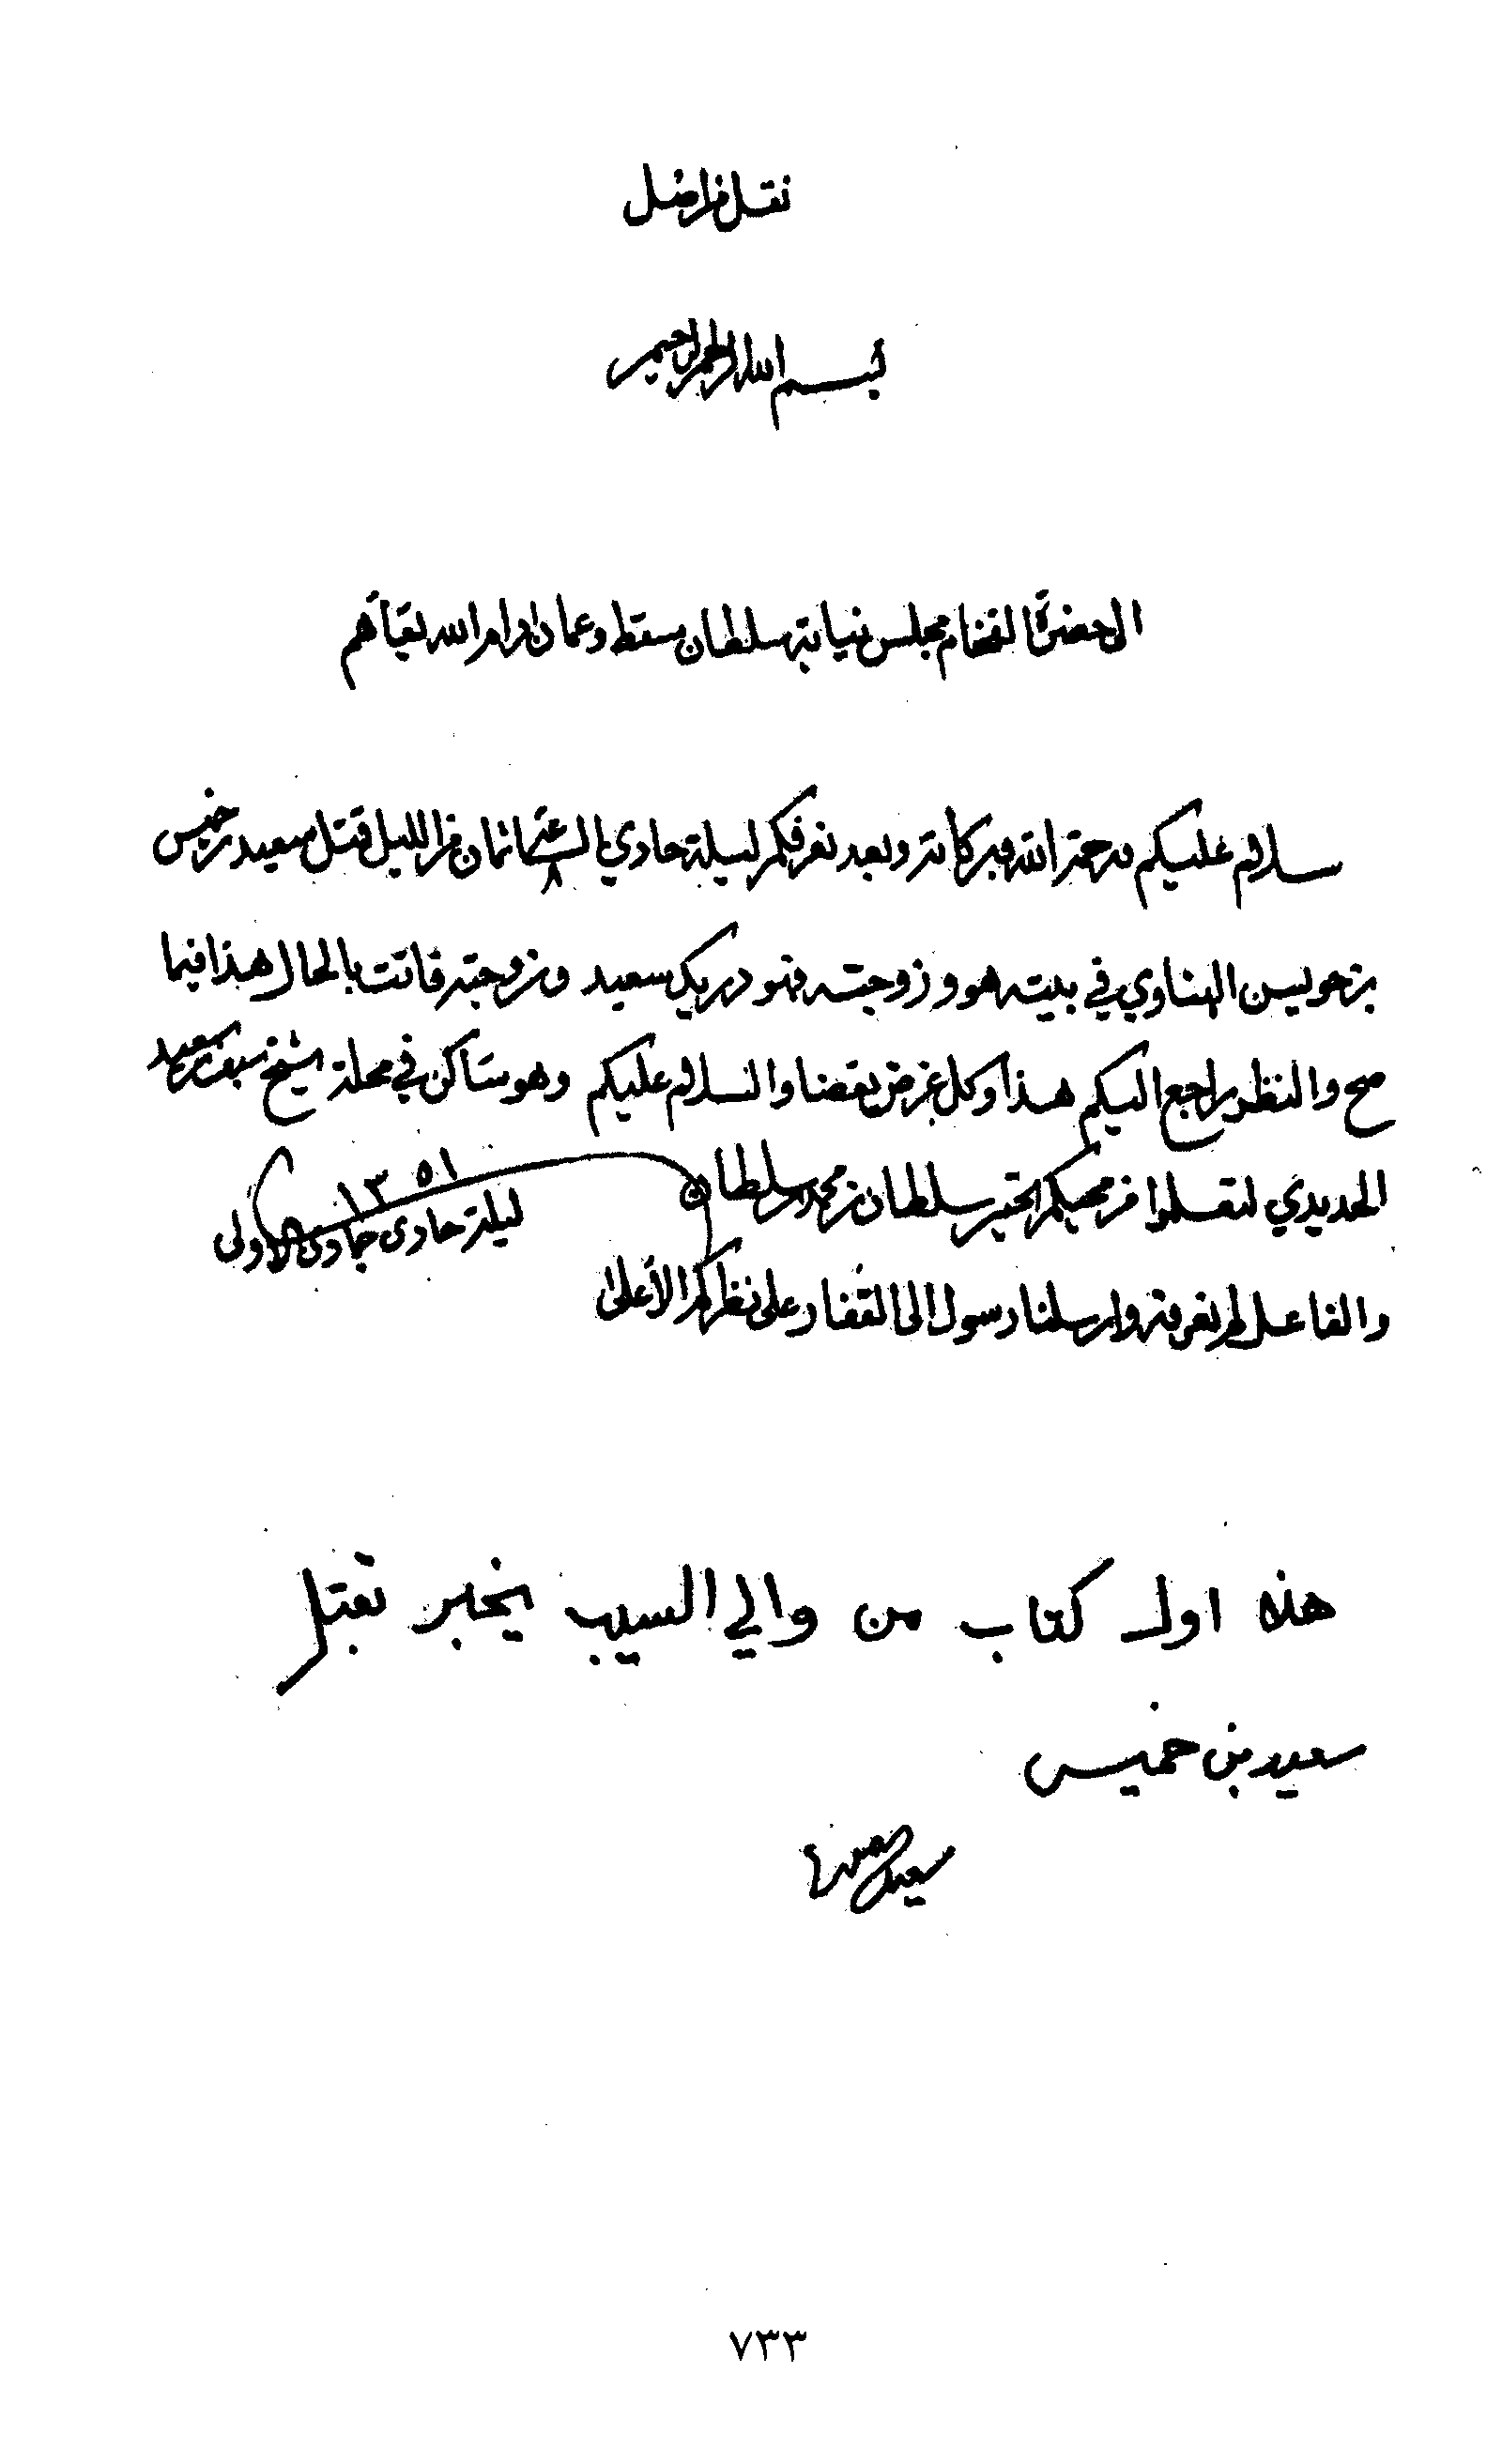 نقل من اصل
بسم الله الرحمن الرحيم
الى حضرة الفخام مجلس نيابة سلطان مسقط وعمان ادام الله بقاهم
سلام عليكم ورحمة الله وبركاته وبعد نعرفكم ليلة حادي الساعة ٨ ثمان من الليل قتل سعيد بن خميس
بن حويسن الهناوي في بيته هو وزوجته سعيد وزوجته فاتت بالحال هذا فيما
صح والنظر راجع اليكم هذا وكل غرض يقضا والسلام عليكم وهو ساكن في محلة الشيخ سيف بن سعيد
الحديدي لتعلموا من محبكم الحقير سلطان بن محمد سلطان
ليلة حادى جمادى الاولى ١٣٥١
والفاعل لم نعرفه وارسلنا رسول الى القفار وعلى نظركم الأعلى
هذه اول كتاب من والي السيب يخبر بقتل
سعيد بن خميس
٧٣٣